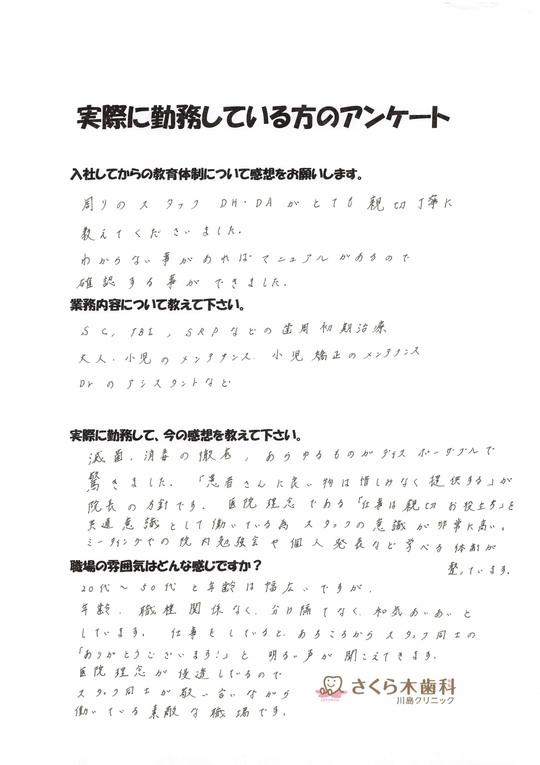 実際に勤務している方のアンケート
入社してからの教育体制について感想をお願いします。
周りのスタッフ DH・DAがとても親切丁寧に
教えてくださいました。
わからない事があればマニュアルがあるので
確認する事ができました。
業務内容について教えて下さい。
SC, TBI, SRPなどの歯周初期治療
大人・小児のメンテナンス. 小児矯正のメンテナンス
Drのアシスタントなど
実際に勤務して、今の感想を教えて下さい。
滅菌. 消毒の徹底, あらゆるものがディスポーザブルで
驚きました。「患者さんに良い物は惜しみなく提供する」が
院長の方針です。医院理念である「仕事は親切お役立ち」を
共通意識として働いている為スタッフの意識が非常に高い。
ミーティングでの院内勉強会や個人発表など学べる体制が
整っています。
職場の雰囲気はどんな感じですか？
20代～50代と年齢は幅広いですが、
年齢. 職種関係なく. 分け隔てなく. 和気あいあいと
しています。仕事をしていると、あちこちからスタッフ同士の
「ありがとうございます!」と明るい声が聞こえてきます。
医院理念が浸透しているので
スタッフ同士が敬い合いながら
働いている素敵な職場です。
さくら木歯科
川島クリニック